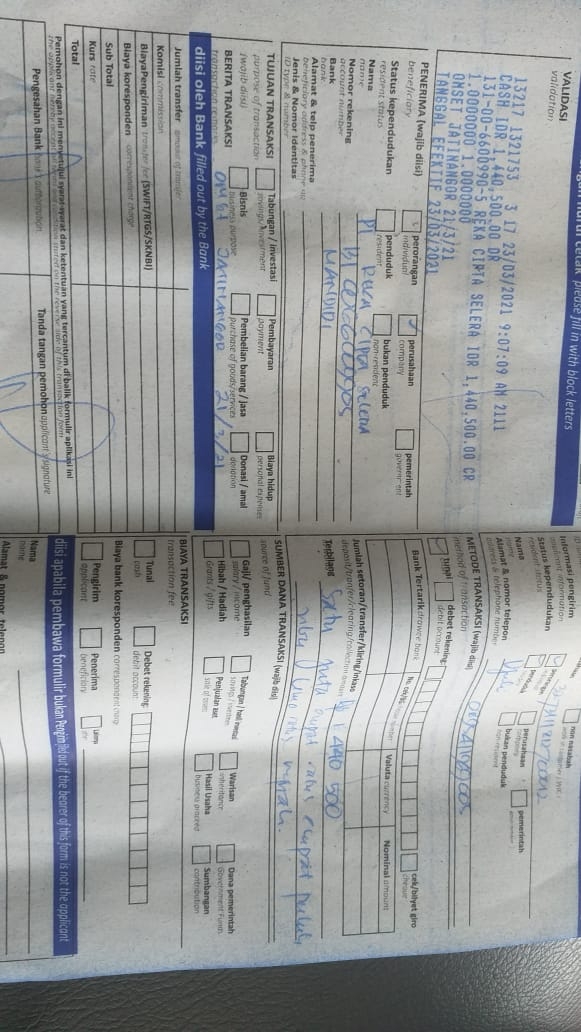 please fill in with block letters
VALIDASI
validation
13217 1321753 3 17 23/03/2021 9:07:09 AM 2111
CASH IDR 1,440,500.00 DR
131-00-6600990-5 REKA CIPTA SELERA IDR 1,440,500.00 CR
1.0000000 1.0000000
OMSET JATINANGOR 21/3/21
TANGGAL EFEKTIF 23/03/2021
PENERIMA (wajib diisi)
beneficiary
perorangan
individual
perusahaan
company
pemerintah
government
Status kependudukan
resident status
penduduk
resident
bukan penduduk
non-resident
Nama
name
PT Reka Cipta Selera
Nomor rekening
account number
Bank
bank
MANDIRI
Alamat & telp penerima
beneficiary address & phone
Jenis & Nomor Identitas
ID type & number
TUJUAN TRANSAKSI
purpose of transaction
(wajib diisi)
Tabungan / investasi
savings/investment
Pembayaran
payment
Biaya hidup
personal expenses
Bisnis
business purpose
Pembelian barang / jasa
purchase of goods/services
Donasi / amal
donation
BERITA TRANSAKSI
omset JATINANGOR 21/3/21
diisi oleh Bank filled out by the Bank
Jumlah transfer amount of transfer
Komisi commission
Biaya Pengiriman transfer fee (SWIFT/RTGS/SKNBI)
Biaya koresponden correspondent charge
Sub Total
Kurs rate
Total
Pemohon dengan ini menyetujui syarat-syarat dan ketentuan yang tercantum dibalik formulir aplikasi ini
Pengesahan Bank bank's authorization
Tanda tangan pemohon applicant's signature
Informasi pengirim
applicant information
non nasabah
Status kependudukan
resident status
perusahaan
company
pemerintah
Nama
name
bukan penduduk
non-resident
Alamat & nomor telepon
address & telephone number
METODE TRANSAKSI (wajib diisi)
method of transaction
Tunai
debet rekening:
debit account
cek/bilyet giro
cheque
Bank Tertarik drawee bank
Valuta currency
Nominal amount
Jumlah setoran/transfer/kliring/inkaso
1.440.500
Terbilang
Satu juta empat ratus empat puluh
ribu lima ratus rupiah.
SUMBER DANA TRANSAKSI (wajib diisi)
source of fund
Gaji/ penghasilan
salary / income
Warisan
inheritance
Dana pemerintah
Government Funds
Hibah / Hadiah
Grants / gifts
Penjualan aset
sale of asset
Hasil Usaha
business proceed
Sumbangan
contribution
BIAYA TRANSAKSI
transaction fee
Tunai
cash
Debet rekening:
debit account
Biaya bank koresponden correspondent charge
Pengirim
applicant
Penerima
beneficiary
diisi apabila pembawa formulir bukan Pengirim filled out if the bearer of this form is not the applicant
Nama
name
Alamat & nomor telepon